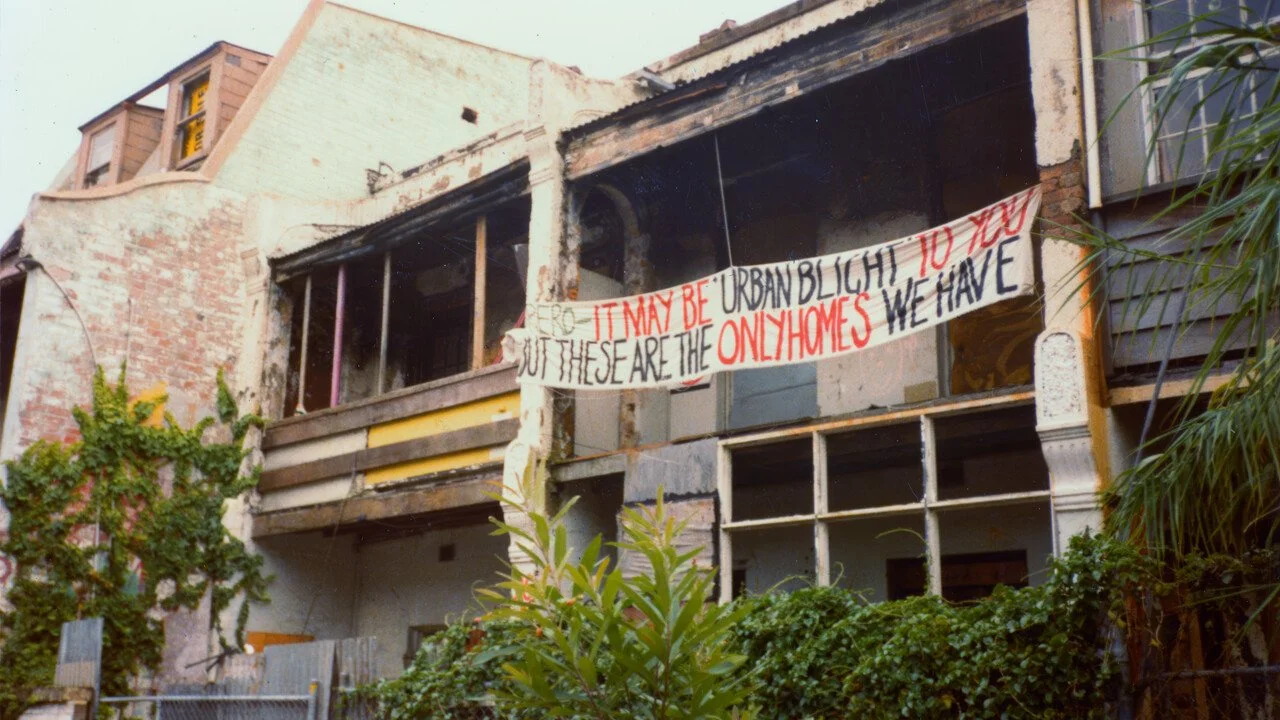 ERO— IT MAY BE "URBAN BLIGHT" TO YOU
BUT THESE ARE THE ONLY HOMES WE HAVE